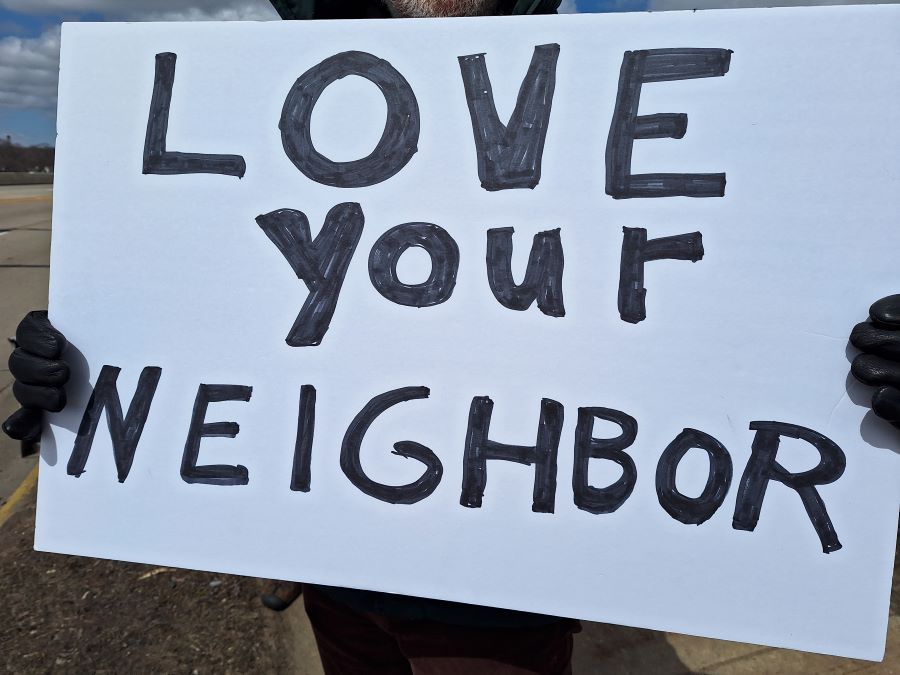 LOVE
your
NEIGHBOR